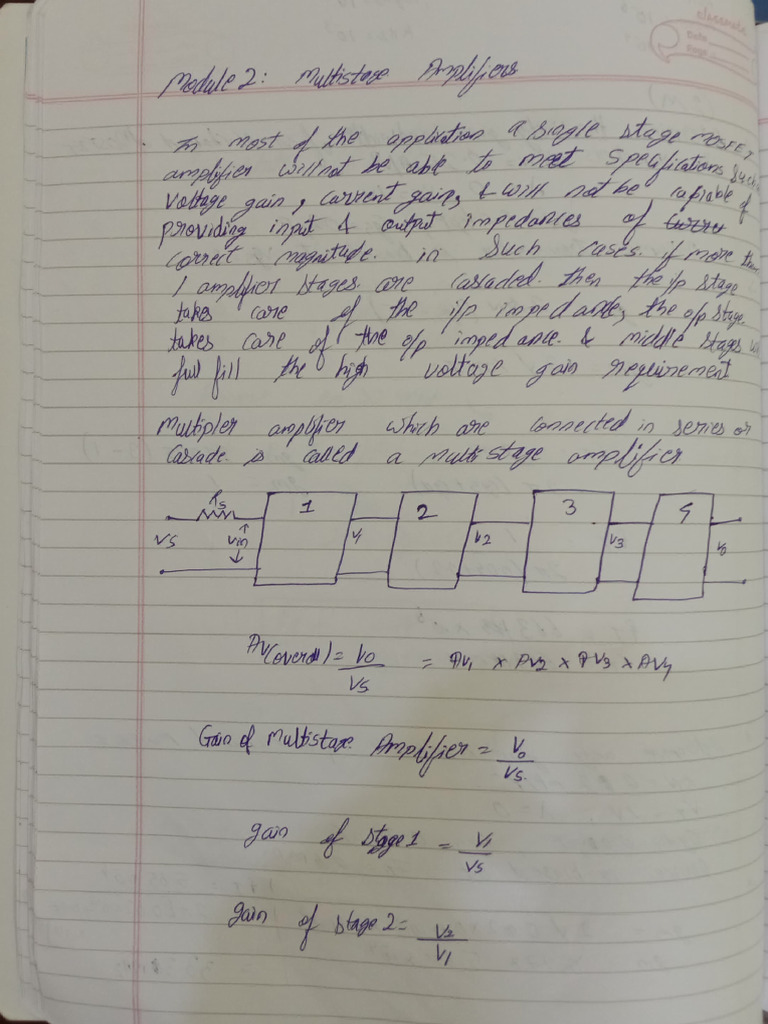 classmate
Date
Page
Module 2: Multistage Amplifiers
In most of the application a single stage MOSFET
amplifier will not be able to meet specifications such
voltage gain, current gain, & will not be capable of
providing input & output impedances of
correct magnitude. in such cases. if more than
1 amplifier stages. are cascaded. then the i/p stage
takes care of the i/p impedance, the o/p stage.
takes care of the o/p impedance. & middle stages
full fill the high voltage gain requirement
Multipler amplifier which are connected in series or
Cascade is called a multistage amplifier
Rs 1 2 3 4
Vs Vin V1 V2 V3 Vo
Av(overall) = Vo/Vs = Av1 x Av2 x Av3 x Av4
Gain of Multistage Amplifier = Vo/Vs.
gain of stage 1 = V1/Vs
gain of stage 2 = V2/V1